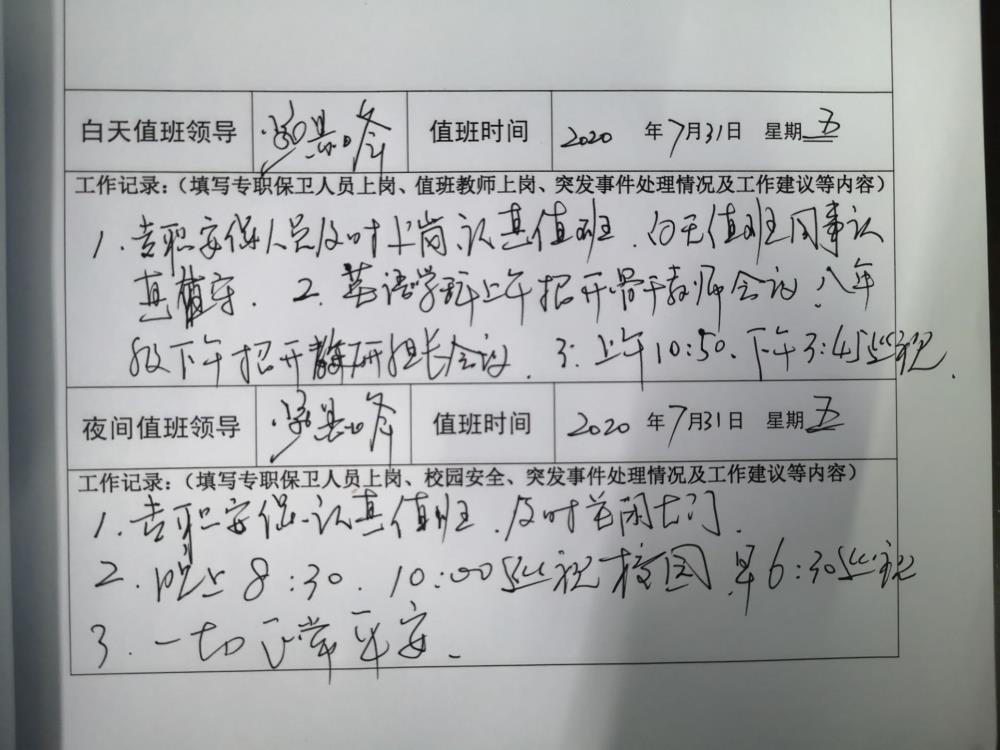 白天值班领导 值班时间 2020 年7月31日 星期五
工作记录：（填写专职保卫人员上岗、值班教师上岗、突发事件处理情况及工作建议等内容）
1. 专职安保人员及时上岗、认真值班. 白天值班同事认
真值守. 2. 英语学科上午招开骨干教师会议. 八年
级下午招开教研组长会议. 3. 上午10:50、下午3:45巡视.
夜间值班领导 值班时间 2020 年7月31日 星期五
工作记录：（填写专职保卫人员上岗、校园安全、突发事件处理情况及工作建议等内容）
1. 专职安保认真值班. 及时关闭大门.
2. 晚上8:30. 10:00巡视校园 早6:30巡视
3. 一切正常平安.